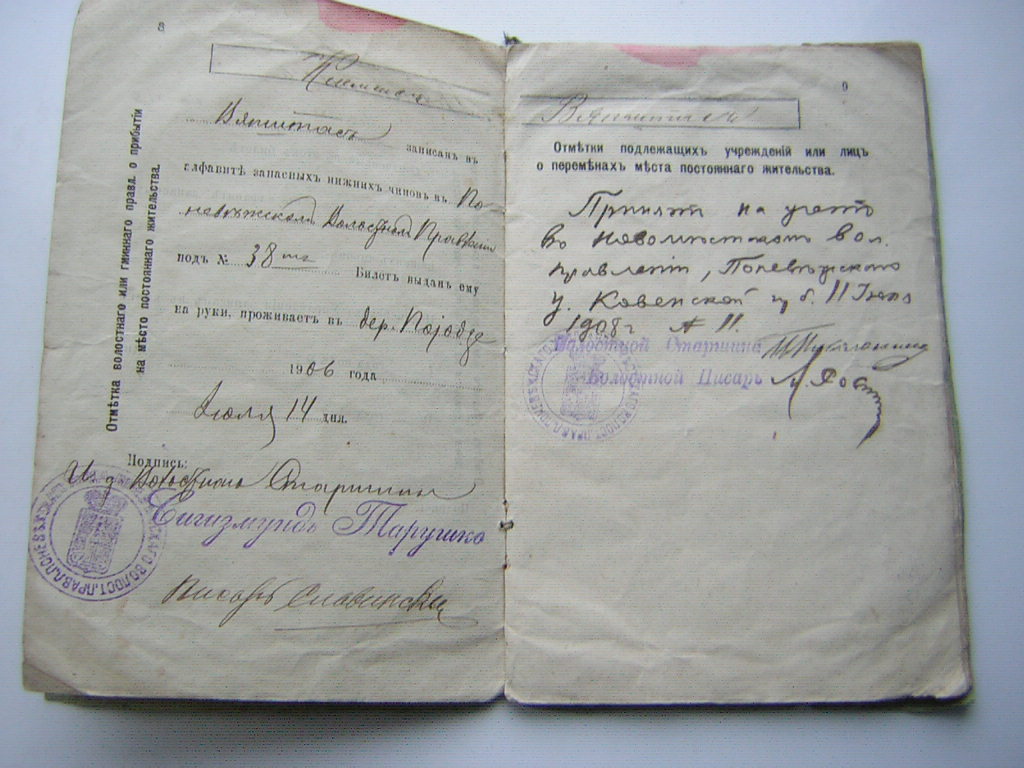 8
Отмѣтка волостнаго или гминнаго правл. о прибытіи
на мѣсто постояннаго жительства.
записанъ въ
алфавитѣ запасныхъ нижнихъ чиновъ въ По-
невѣжскомъ Волостномъ Правленіи
подъ № 38 Билетъ выданъ ему
на руки, проживаетъ въ дер.
1906 года
Іюля 14 дня.
Подпись:
И. д. Волостного Старшины
Сигизмундъ Тарушко
Писарь Славинскій
9
Отмѣтки подлежащихъ учрежденій или лицъ
о перемѣнахъ мѣста постояннаго жительства.
Принятъ на учетъ
въ Новомѣстскомъ вол.
правленіи, Поневѣжскаго
у. Ковенской губ. 11 Іюля
1908 г № 11.
Волостной Старшина
Волостной Писарь